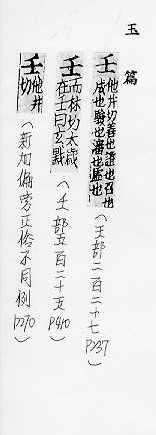 玉篇
壬 他井切善也證也召也
成也驗也審也虛也
(壬部二百二十七 P237)
壬 而林切太歲
在壬曰玄黓
(壬部五百二十五 P410)
壬 他井
切
(新加偏旁正俗不同例 P270)